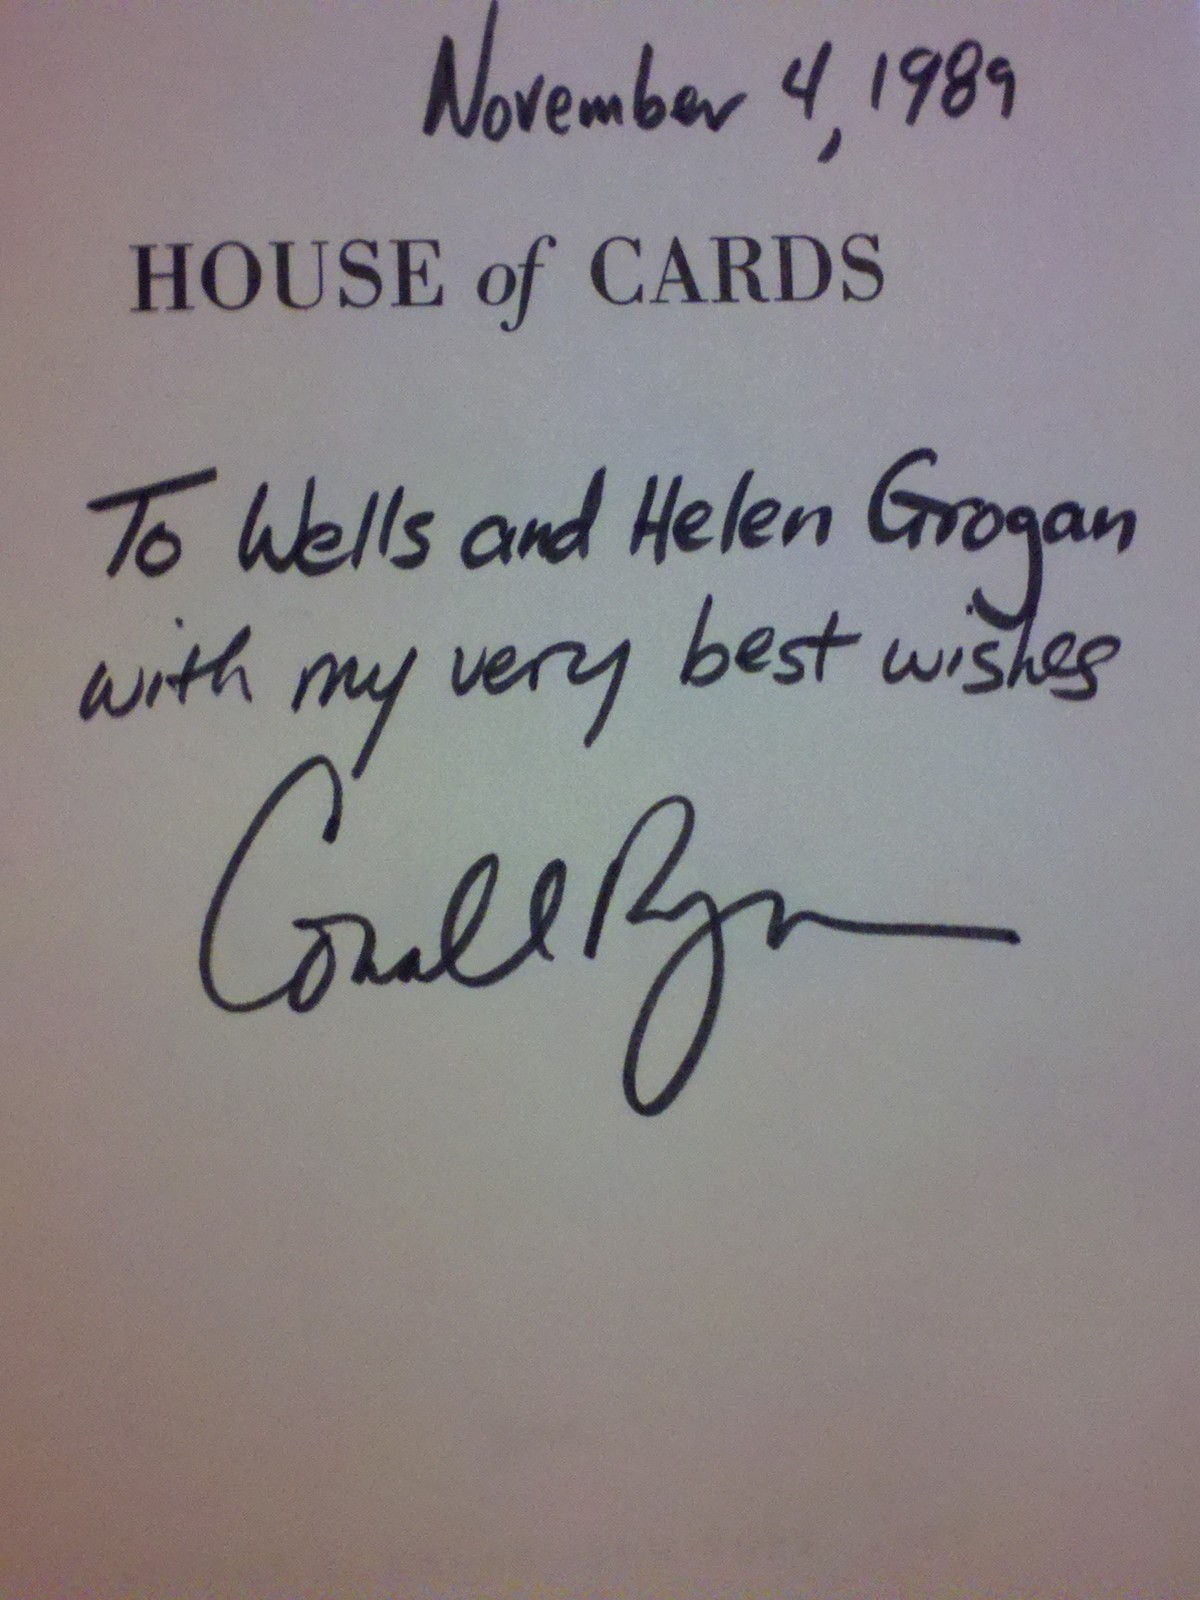 November 4, 1989
HOUSE of CARDS
To Wells and Helen Grogan
with my very best wishes
Conall Ryan